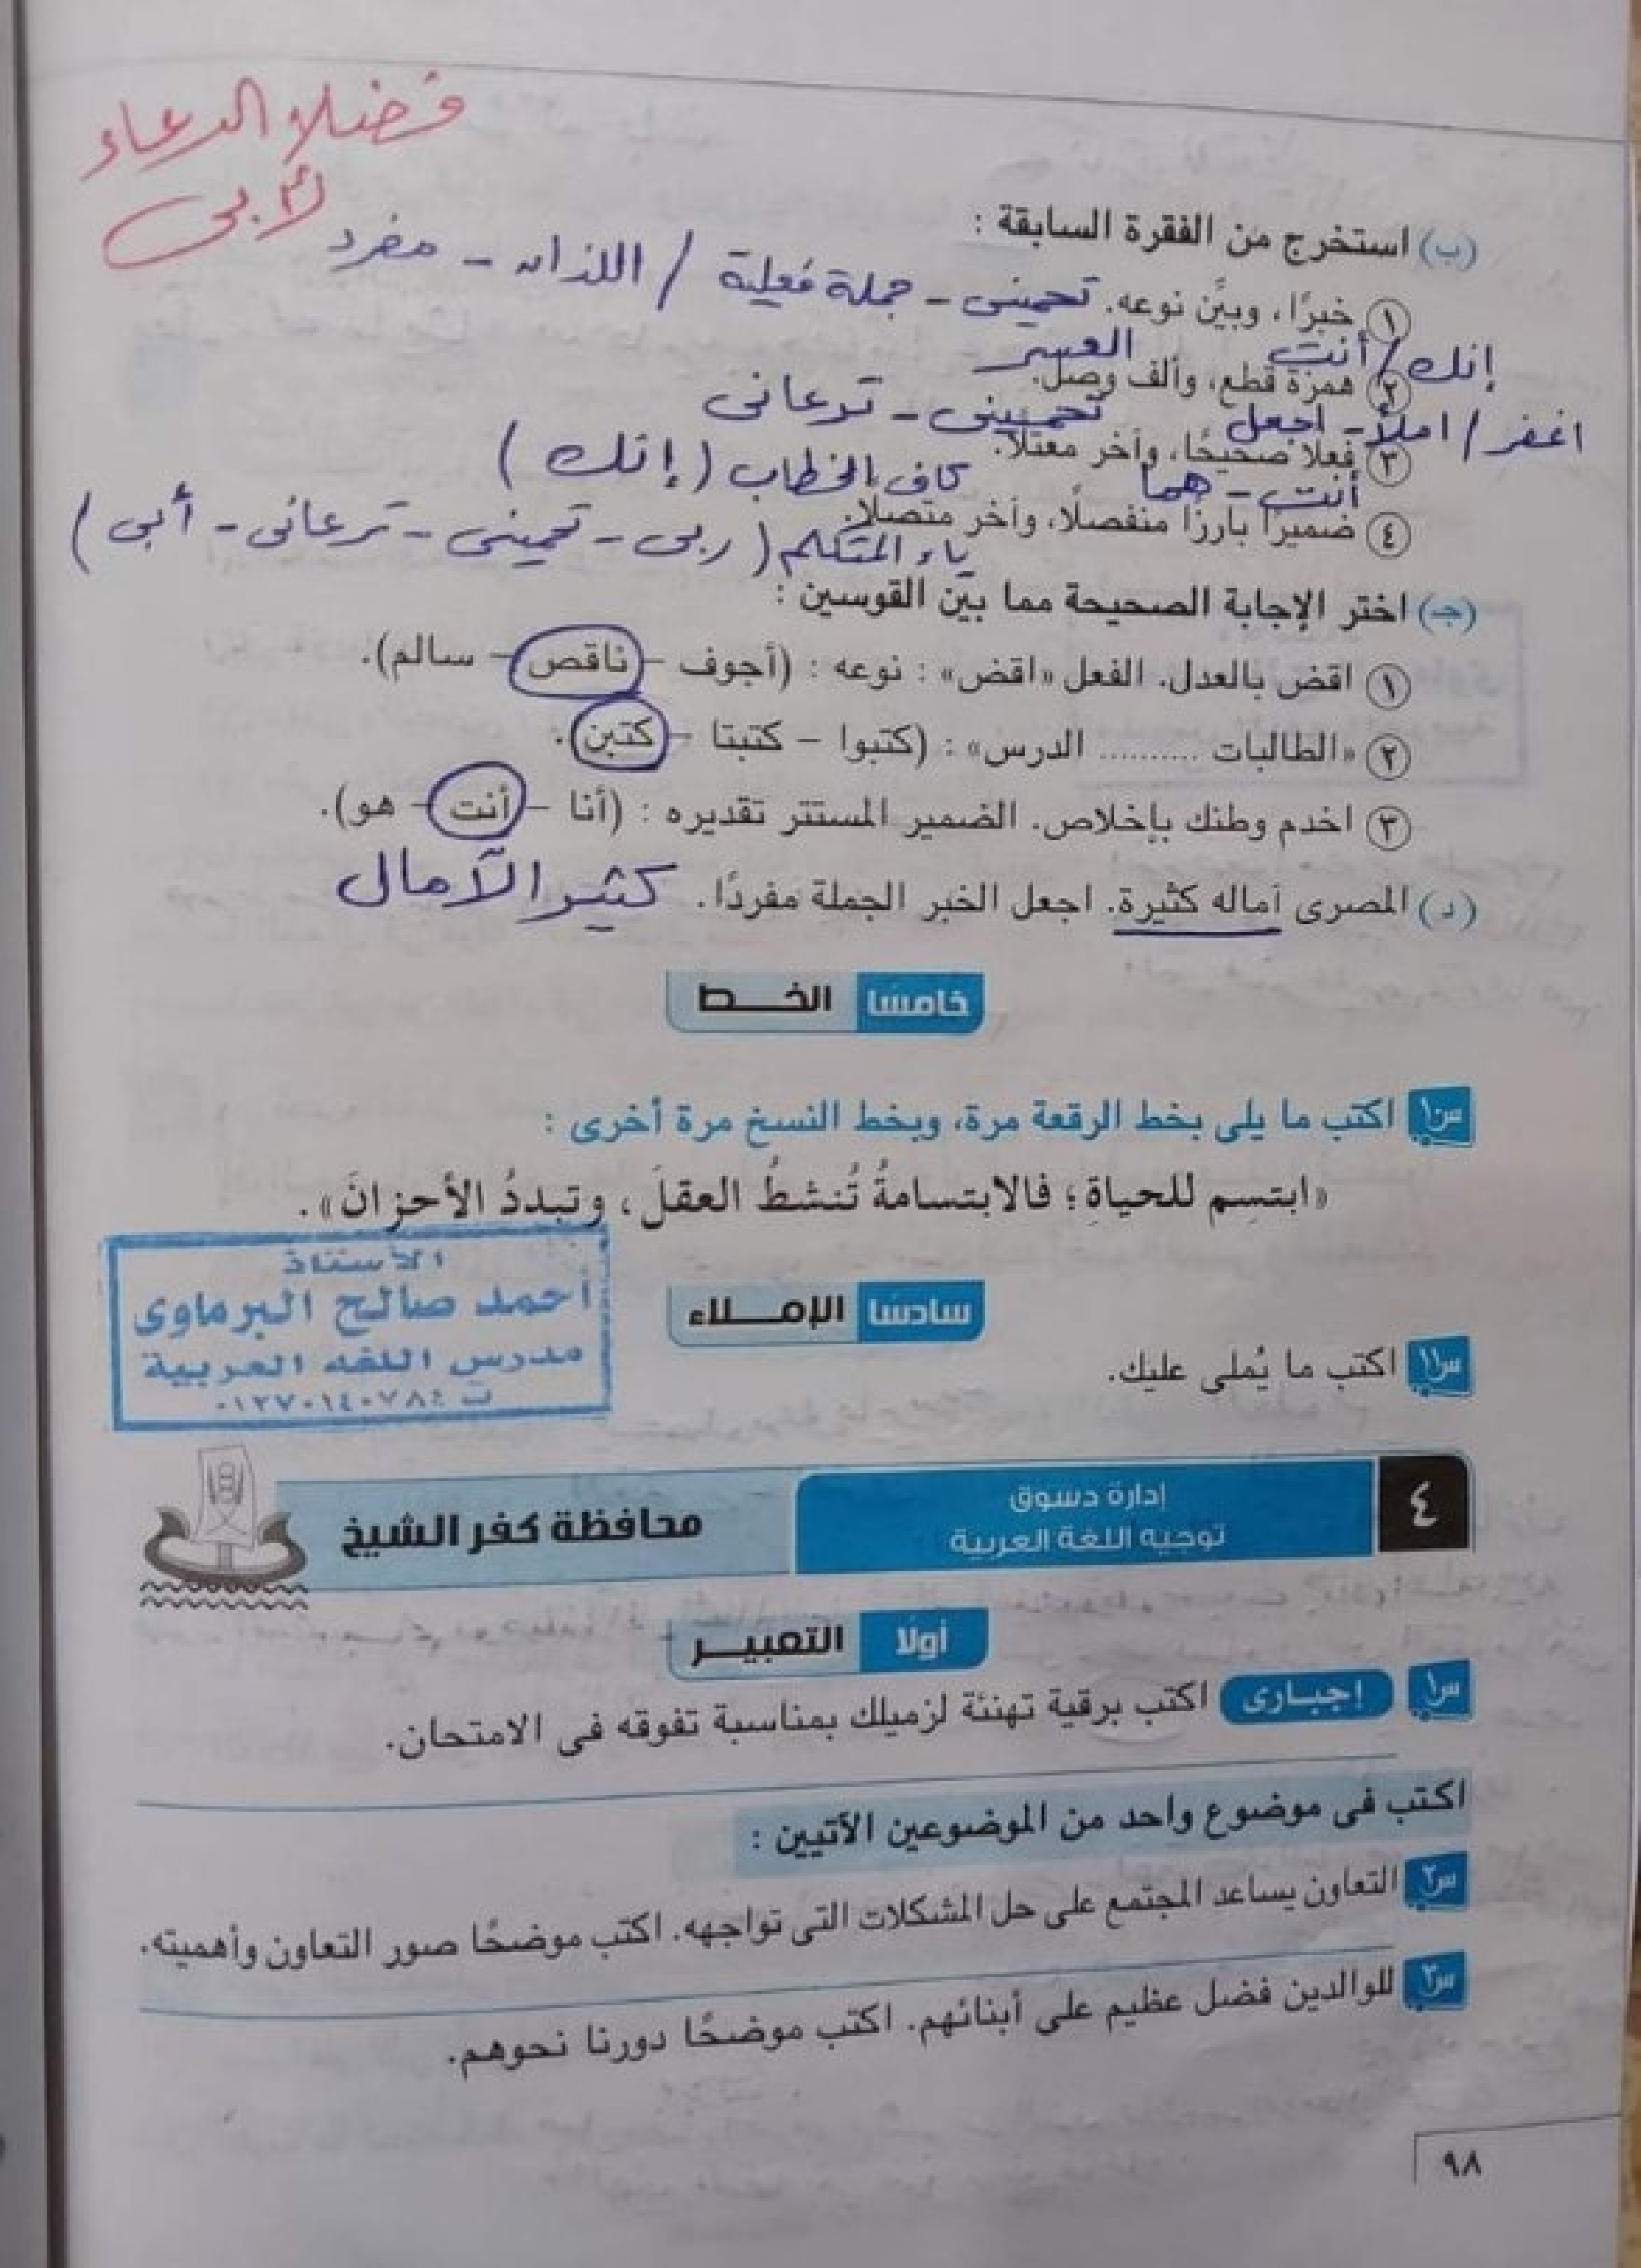 فضلا الدعاء
لأبى
(ب) استخرج من الفقرة السابقة :
١ خبرًا، وبيِّن نوعه. تحمينى - جملة فعلية / اللذان - مفرد
إنك / أنت العسر
٢ همزة قطع، وألف وصل.
اغفر / املأ - اجعل تحمينى - ترعانى
٣ فعلًا صحيحًا، وآخر معتلًا.
أنت - هما كاف الخطاب ( إنك )
٤ ضميرًا بارزًا منفصلًا، وآخر متصلًا.
ياء المتكلم ( ربى - تحمينى - ترعانى - أبى )
(جـ) اختر الإجابة الصحيحة مما بين القوسين :
١ اقض بالعدل. الفعل «اقض» : نوعه : (أجوف – ناقص – سالم).
٢ «الطالبات .......... الدرس» : (كتبوا – كتبتا – كتبن).
٣ اخدم وطنك بإخلاص. الضمير المستتر تقديره : (أنا – أنت – هو).
(د) المصرى آماله كثيرة. اجعل الخبر الجملة مفردًا. كثير الآمال
خامسًا الخـــط
س١٠ اكتب ما يلى بخط الرقعة مرة، وبخط النسخ مرة أخرى :
«ابتسِم للحياةِ؛ فالابتسامةُ تُنشطُ العقلَ، وتبددُ الأحزانَ».
الأستاذ
أحمد صالح البرماوى
مدرس اللغه العربية
ت ٠١٢٧٠١٤٠٧٨٤
سادسًا الإمـــلاء
س١١ اكتب ما يُملى عليك.
٤ إدارة دسوق
توجيه اللغة العربية
محافظة كفر الشيخ
أولًا التعبيــر
س١ إجبـارى اكتب برقية تهنئة لزميلك بمناسبة تفوقه فى الامتحان.
اكتب فى موضوع واحد من الموضوعين الآتيين :
س٢ التعاون يساعد المجتمع على حل المشكلات التى تواجهه. اكتب موضحًا صور التعاون وأهميته.
س٣ للوالدين فضل عظيم على أبنائهم. اكتب موضحًا دورنا نحوهم.
٩٨